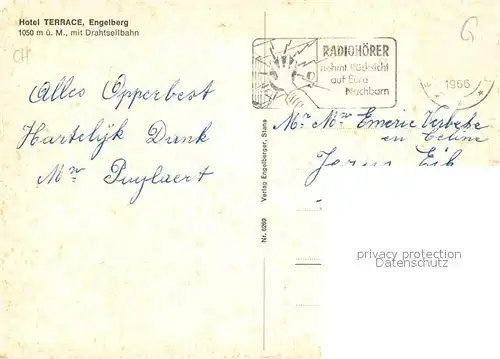 Hotel TERRACE, Engelberg
1050 m ü. M., mit Drahtseilbahn
CH
G
RADIOHÖRER
nehmt Rücksicht
auf Eure
Nachbarn
1966
Alles Opperbest
Hartelijk Dank
Mr Puylaert
Mr Mvr Emeric Verbeke
en Celine
Verlag Engelberger, Stans
Nr. 9269
privacy protection
Datenschutz